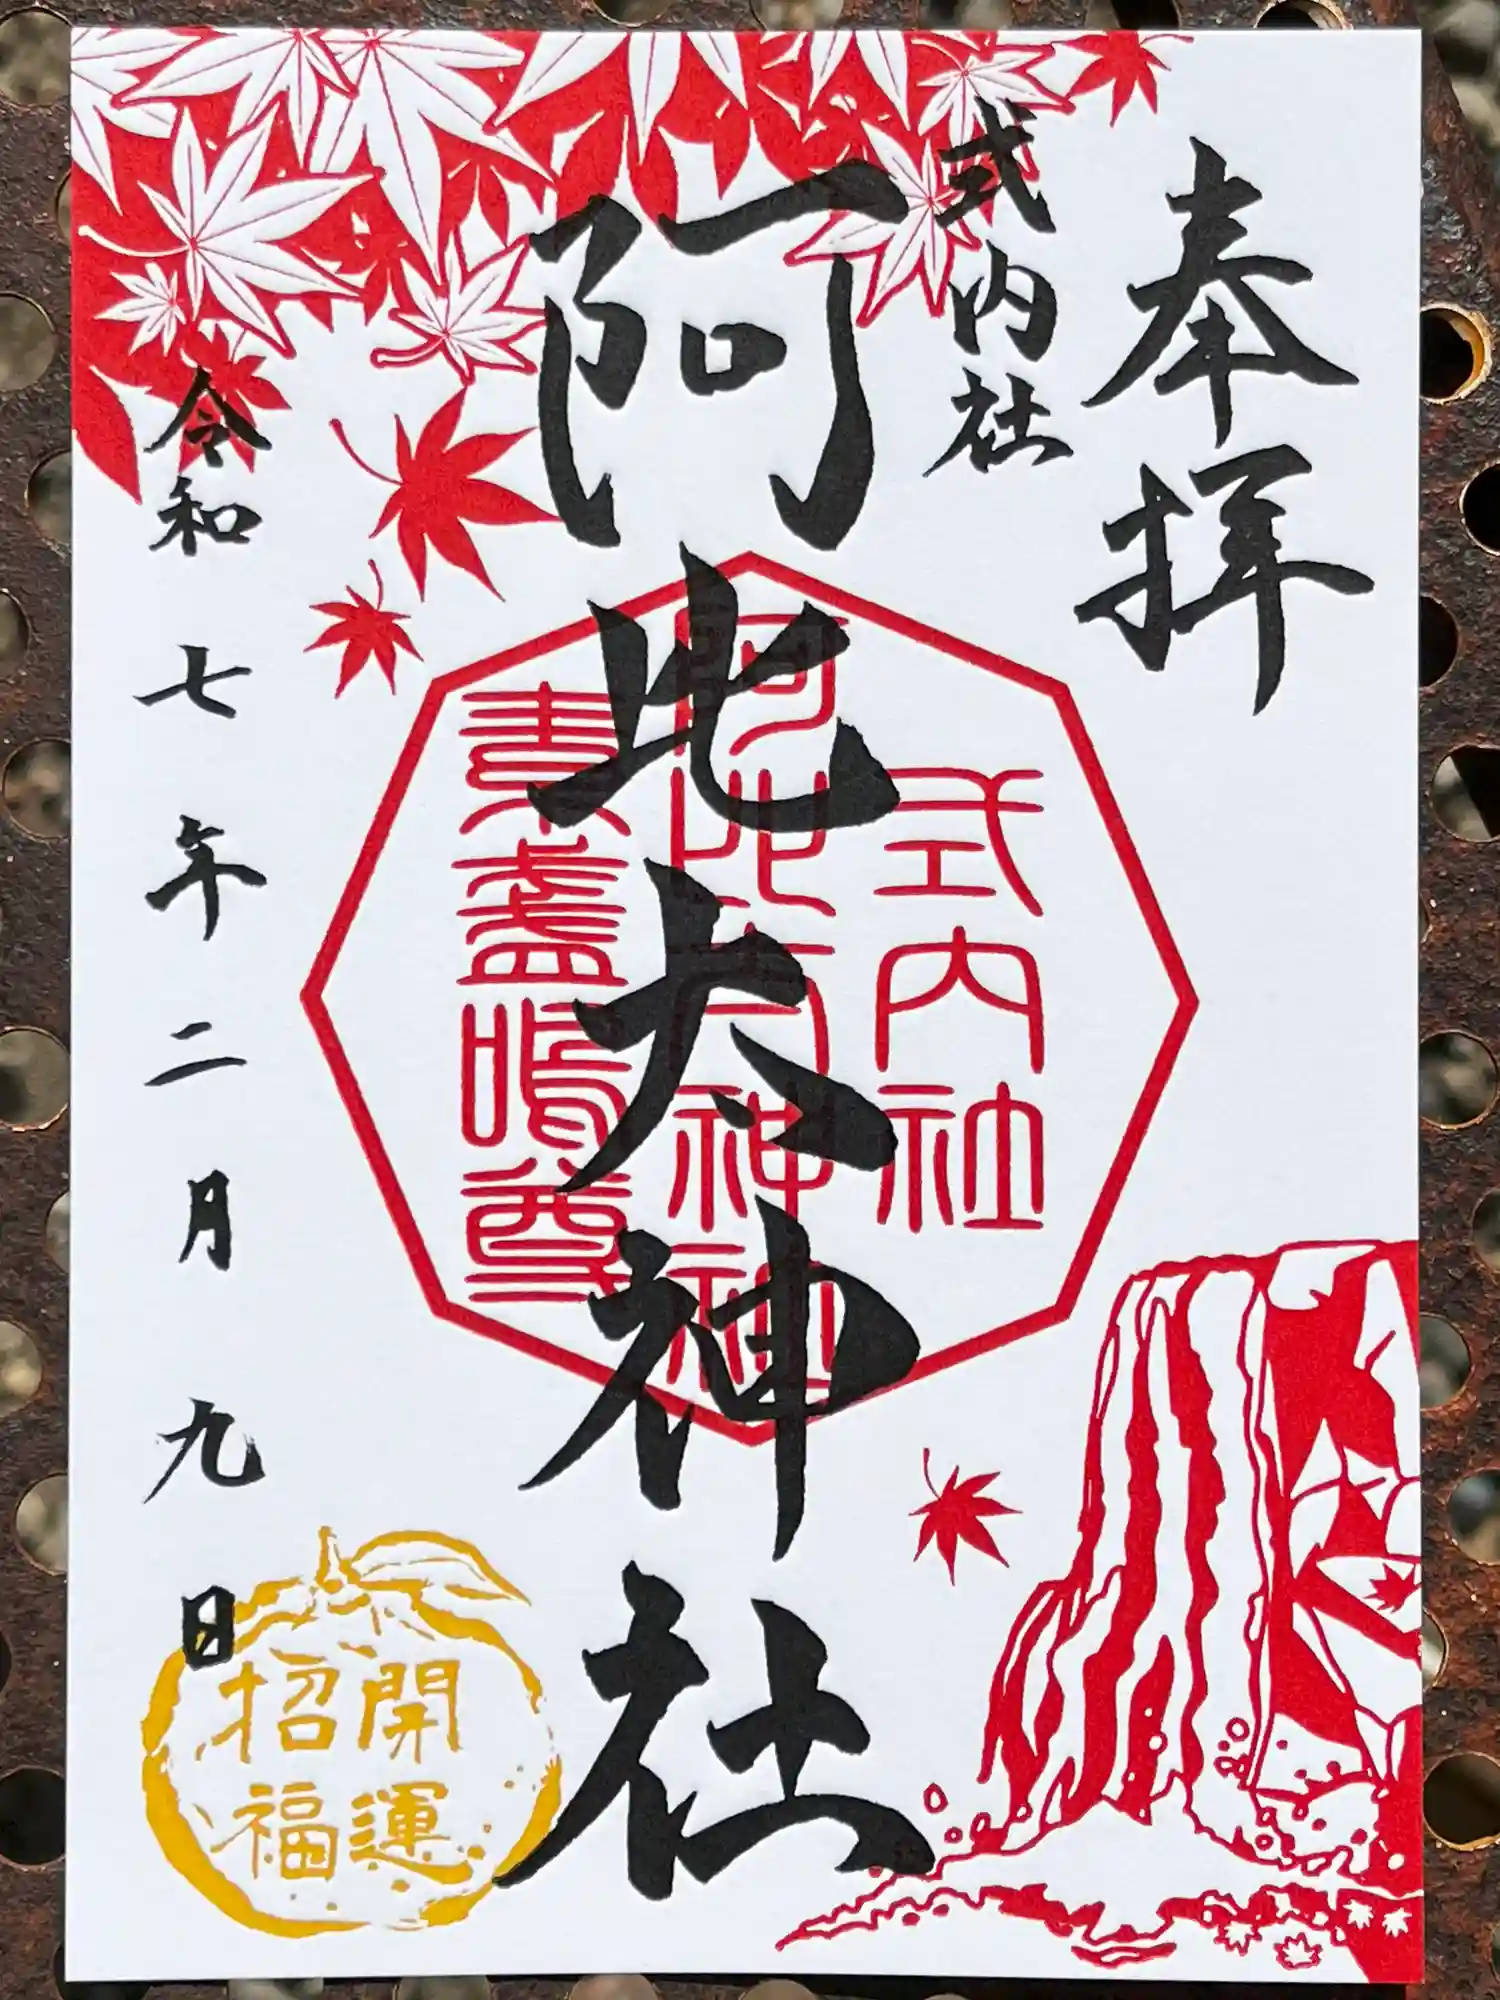 奉拝
式内社
阿比太神社
式内社
阿比太神社
素盞嗚尊
令和七年二月九日
開運
招福